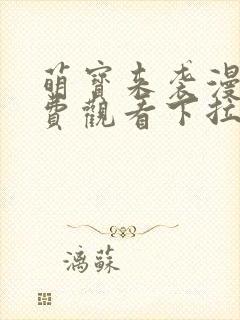 萌寶來袭漫
費觀看下拉
漓蘇